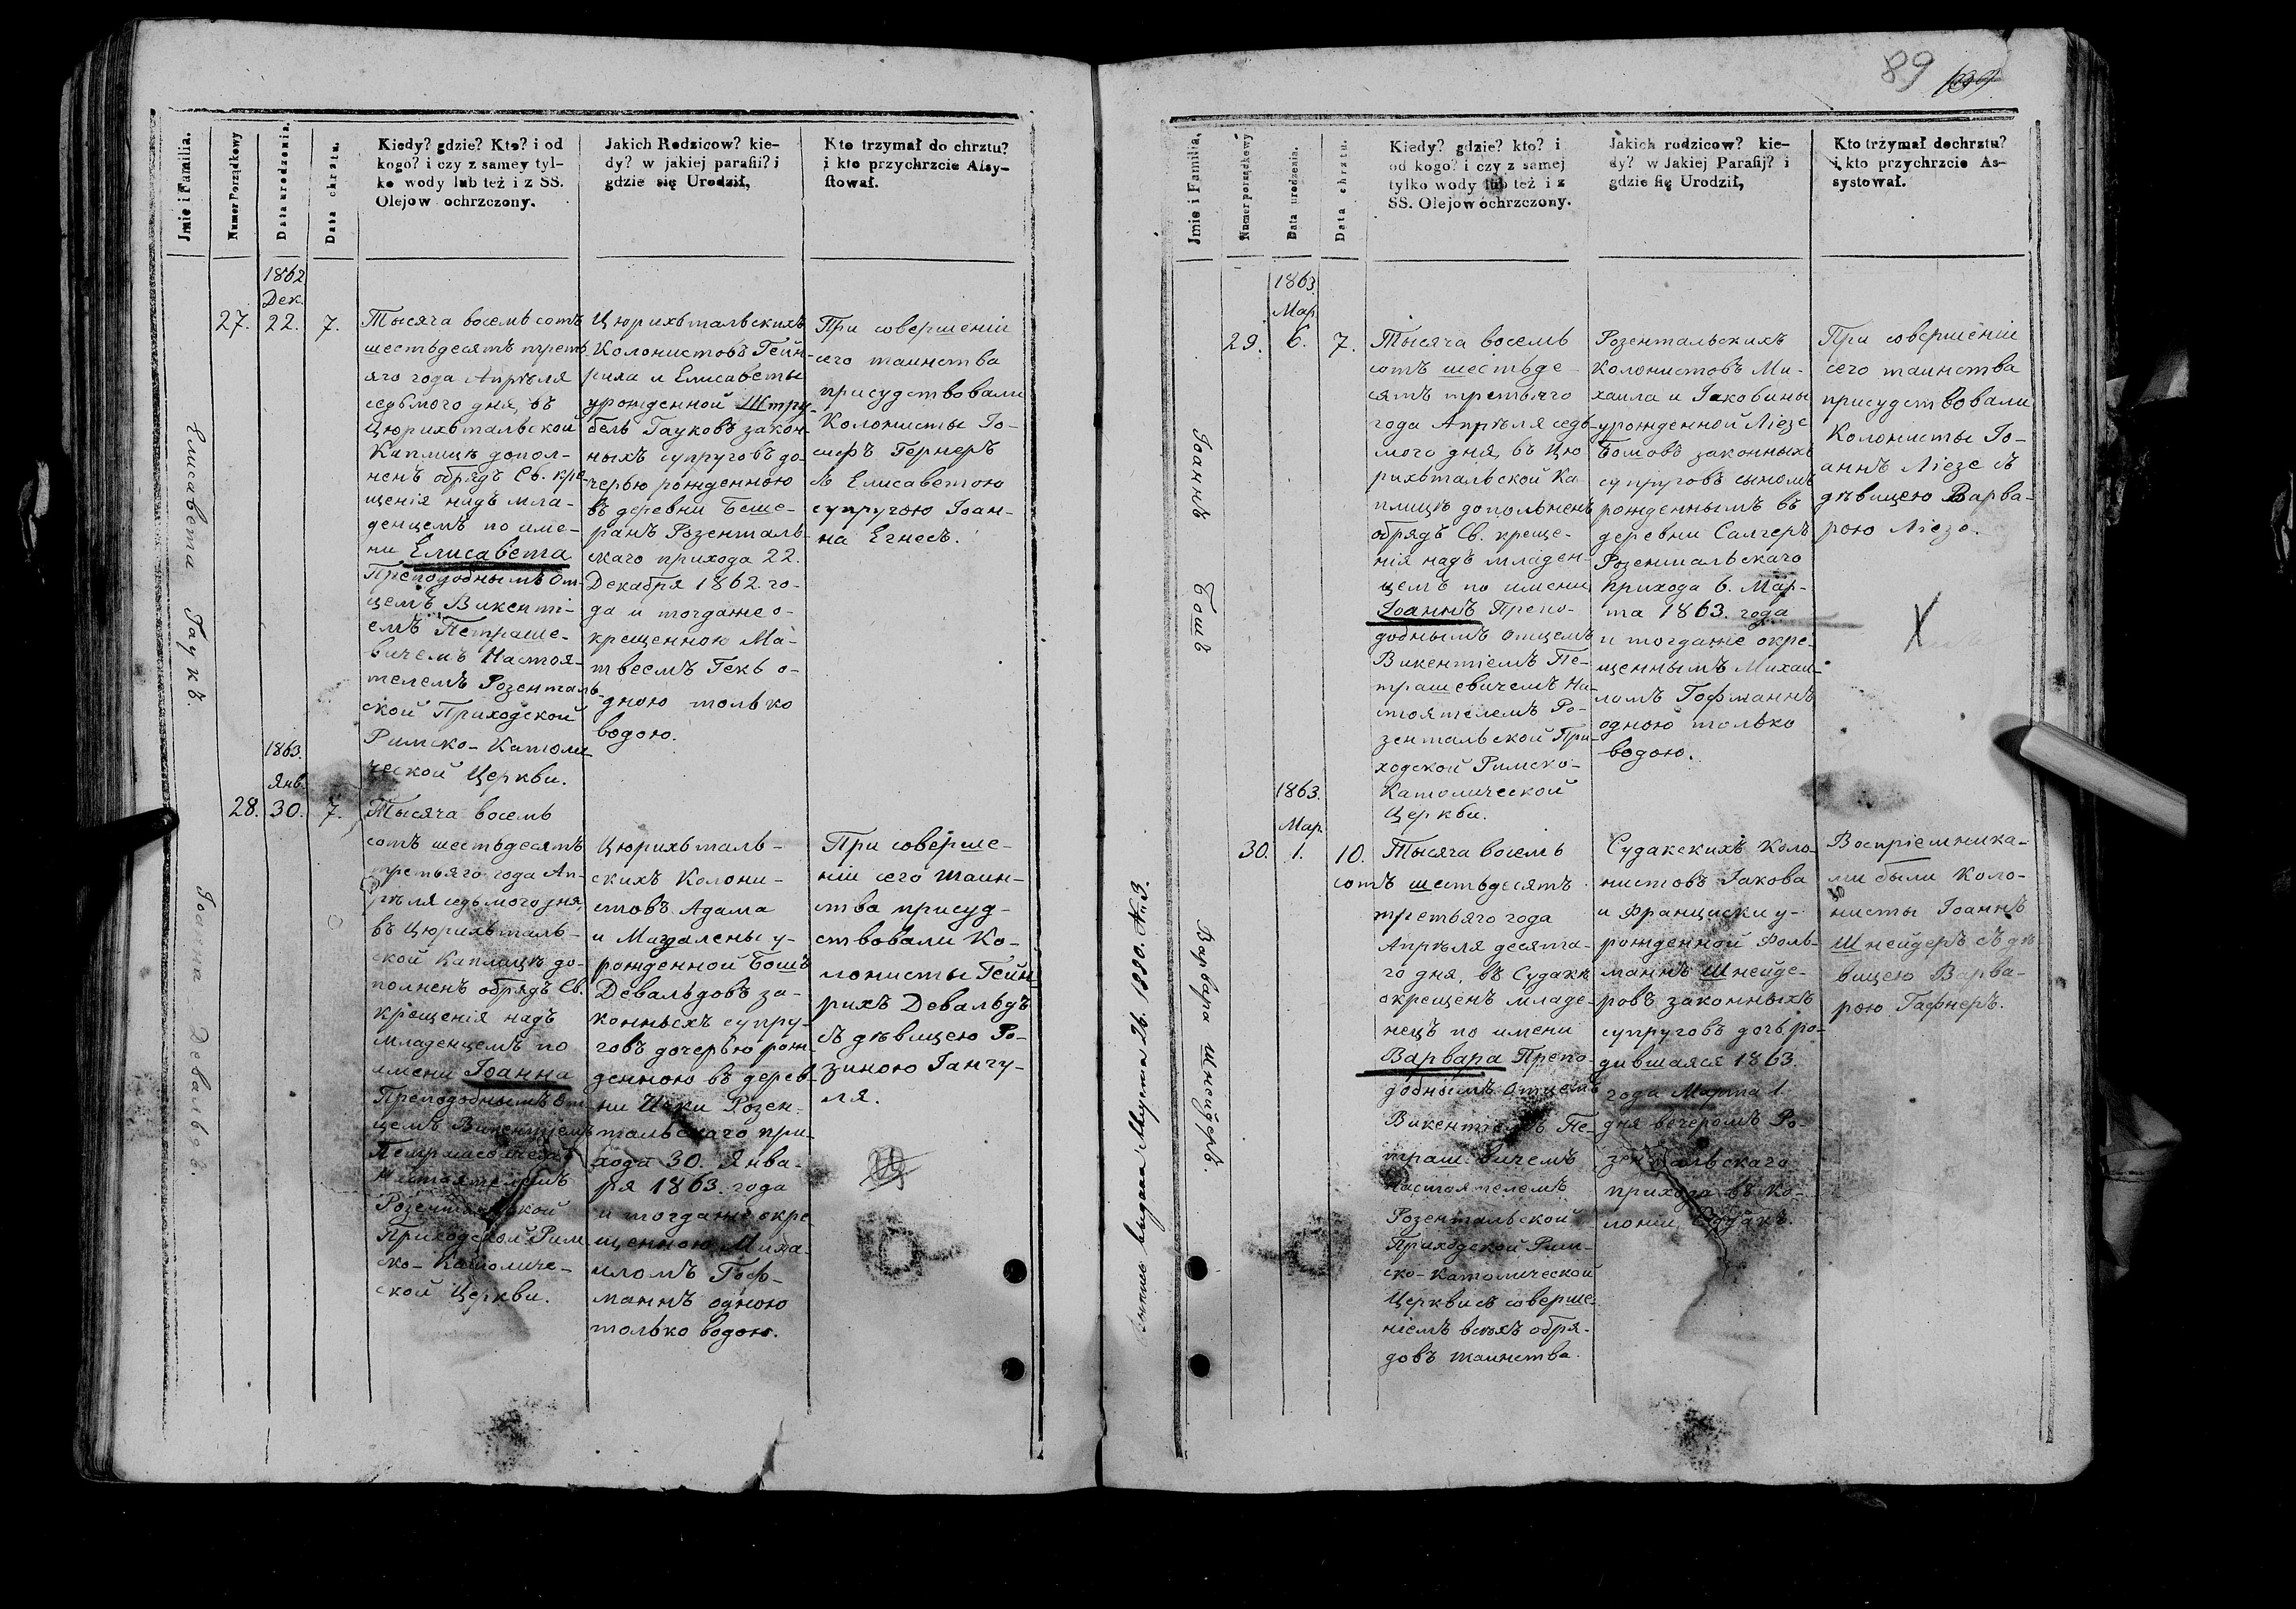 89
Jmie i Familia.
Numer Porządkowy
Data urodzenia.
Data chrztu.
Kiedy? gdzie? Kto? i od
kogo? i czy z samey tyl-
ko wody lub też i z SS.
Olejow ochrzczony.
Jakich Rodzicow? kie-
dy? w jakiej parafii? i
gdzie się Urodził,
Kto trzymał do chrztu?
i kto przychrzcie Assy-
stował.
Елисавета Гаукъ.
27.
1862
Дек.
22.
7.
Тысяча восемь сотъ
шестьдесятъ треть-
яго года Апрѣля
седьмого дня, въ
Цюрихтальской
Каплицѣ допол-
ненъ обрядъ Св. кре-
щенія надъ мла-
денцемъ по име-
ни Елисавета
Преподобнымъ От-
цемъ Викенті-
емъ Петраше-
вичемъ Настоя-
телемъ Розенталь-
ской Приходской
Римско-Католи-
ческой Церкви.
Цюрихтальскихъ
Колонистовъ Гейн-
риха и Елисаветы
урожденной Штру-
бель Гауковъ закон-
ныхъ супруговъ до-
черью рожденною
въ деревни Беше-
ранъ Розенталь-
скаго прихода 22.
Декабря 1862. го-
да и тогдаже о-
крещенною Ма-
твеемъ Гекъ о-
дною только
водою.
При совершеніи
сего таинства
присудствовали
Колонисты Іо-
сифъ Гернеръ
съ Елисаветою
супругою Іоан-
на Егнесъ.
Іоанна Девальдъ
28.
1863.
Янв.
30.
7.
Тысяча восемь
сотъ шестьдесятъ
третьяго года Ап-
рѣля седьмого дня,
въ Цюрихталь-
ской Каплицѣ до-
полненъ обрядъ Св.
крещенія надъ
младенцемъ по
имени Іоанна
Преподобнымъ От-
цемъ Викентіемъ
Петрашевичемъ
Настоятелемъ
Розентальской
Приходской Рим-
ско-Католиче-
ской Церкви.
Цюрихталь-
скихъ Колони-
стовъ Адама
и Магдалены у-
рожденной Бошъ
Девальдовъ за-
конныхъ супру-
говъ дочерью рож-
денною въ дерев-
ни Ички Розен-
тальскаго при-
хода 30. Янва-
ря 1863. года
и тогдаже окре-
щенною Миха-
иломъ Гоф-
маннъ одною
только водою.
При соверше-
ніи сего таин-
ства присуд-
ствовали Ко-
лонисты Гейн-
рихъ Девальдъ
съ дѣвицею Ро-
зиною Гангу-
ля.
Jmie i Familia,
Numer porządkowy
Data urodzenia.
Data chrztu.
Kiedy? gdzie? kto? i
od kogo? i czy z samej
tylko wody lub też i z
SS. Olejow ochrzczony.
Jakich rodzicow? kie-
dy? w Jakiej Parafij? i
gdzie się Urodził,
Kto trzymał dochrztu?
i kto przychrzcie As-
systował.
Іоаннъ Бошъ
29.
1863.
Мар.
6.
7.
Тысяча восемь
сотъ шестьде-
сятъ третьяго
года Апрѣля седь-
мого дня, въ Цю-
рихтальской Ка-
плицѣ дополненъ
обрядъ Св. креще-
нія надъ младен-
цемъ по имени
Іоаннъ Препо-
добнымъ Отцемъ
Викентіемъ Пе-
трашевичемъ На-
стоятелемъ Ро-
зентальской При-
ходской Римско-
Католической
Церкви.
Розентальскихъ
Колонистовъ Ми-
хаила и Іаковины
урожденной Ліезе
Бошовъ законныхъ
супруговъ сыномъ
рожденнымъ въ
деревни Салгеръ
Розентальскаго
прихода 6. Мар-
та 1863. года
и тогдаже окре-
щеннымъ Михаи-
ломъ Гофманнъ
одною только
водою.
При совершеніи
сего таинства
присудствовали
Колонисты Іо-
аннъ Ліезе съ
дѣвицею Варва-
рою Ліезе.
X
Копись выдана Августа 26. 1880. №3.
Варвара Шнейдеръ.
30.
1863.
Мар.
1.
10.
Тысяча восемь
сотъ шестьдесятъ
третьяго года
Апрѣля десята-
го дня, въ Судакѣ
окрещенъ младе-
нецъ по имени
Варвара Препо-
добнымъ Отцемъ
Викентіемъ Пе-
трашевичемъ
настоятелемъ
Розентальской
Приходской Рим-
ско-Католической
Церкви съ соверше-
ніемъ всѣхъ обря-
довъ таинства.
Судакскихъ Коло-
нистовъ Іакова
и Франциски у-
рожденной Фоль-
маннъ Шнейде-
ровъ законныхъ
супруговъ дочь ро-
дившаяся 1863.
года Марта 1.
дня вечеромъ Ро-
зентальскаго
прихода въ Ко-
лоніи Судакъ.
Воспріемника-
ми были Коло-
нисты Іоаннъ
Шнейдеръ съ дѣ-
вицею Варва-
рою Гафнеръ.